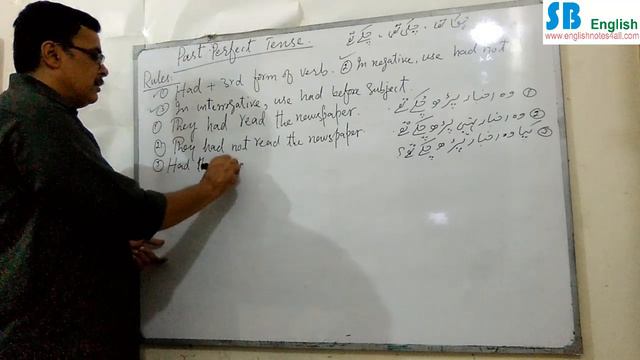 SB English
www.englishnotes4all.com
Past Perfect Tense. چکا تھا ، چکی تھی ، چکے تھے
Rules: ① Had + 3rd form of verb. ② In negative, use had not
③ In interrogative, use had before subject.
① They had read the newspaper. ① وہ اخبار پڑھ چکے تھے۔
② They had not read the newspaper. ② وہ اخبار نہیں پڑھ چکے تھے۔
③ Had ③ کیا وہ اخبار پڑھ چکے تھے؟